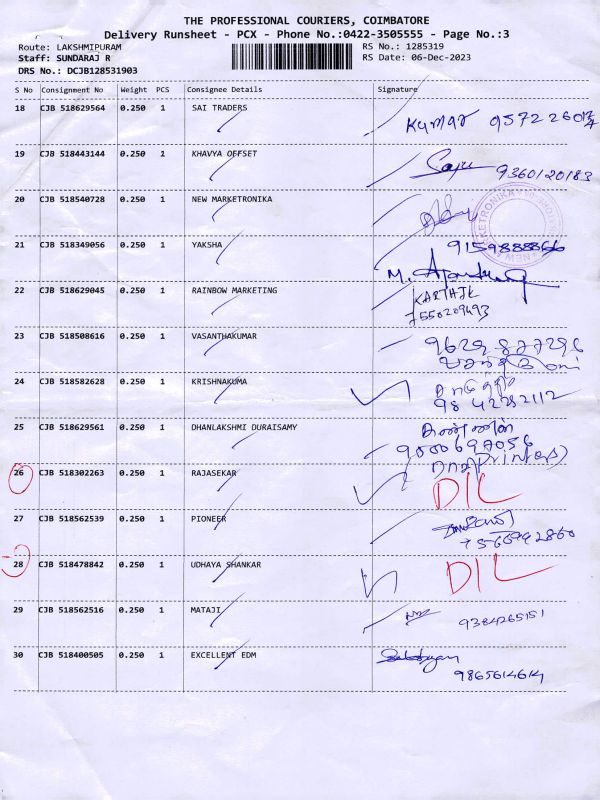 THE PROFESSIONAL COURIERS, COIMBATORE
Delivery Runsheet - PCX - Phone No.:0422-3505555 - Page No.:3
Route: LAKSHMIPURAM RS No.: 1285319
Staff: SUNDARAJ R RS Date: 06-Dec-2023
DRS No.: DCJB128531903
S No Consignment No Weight PCS Consignee Details Signature
18 CJB 518629564 0.250 1 SAI TRADERS
Kumar
19 CJB 518443144 0.250 1 KHAVYA OFFSET
9360120183
20 CJB 518540728 0.250 1 NEW MARKETRONIKA
21 CJB 518349056 0.250 1 YAKSHA
9159888866
22 CJB 518629045 0.250 1 RAINBOW MARKETING
KARTHIK
7550209493
23 CJB 518508616 0.250 1 VASANTHAKUMAR
24 CJB 518582628 0.250 1 KRISHNAKUMA
9842252112
25 CJB 518629561 0.250 1 DHANLAKSHMI DURAISAMY
9000697056
26 CJB 518302263 0.250 1 RAJASEKAR DIL
27 CJB 518562539 0.250 1 PIONEER
28 CJB 518478842 0.250 1 UDHAYA SHANKAR DIL
29 CJB 518562516 0.250 1 MATAJI
9384265151
30 CJB 518400505 0.250 1 EXCELLENT EDM
9865614614